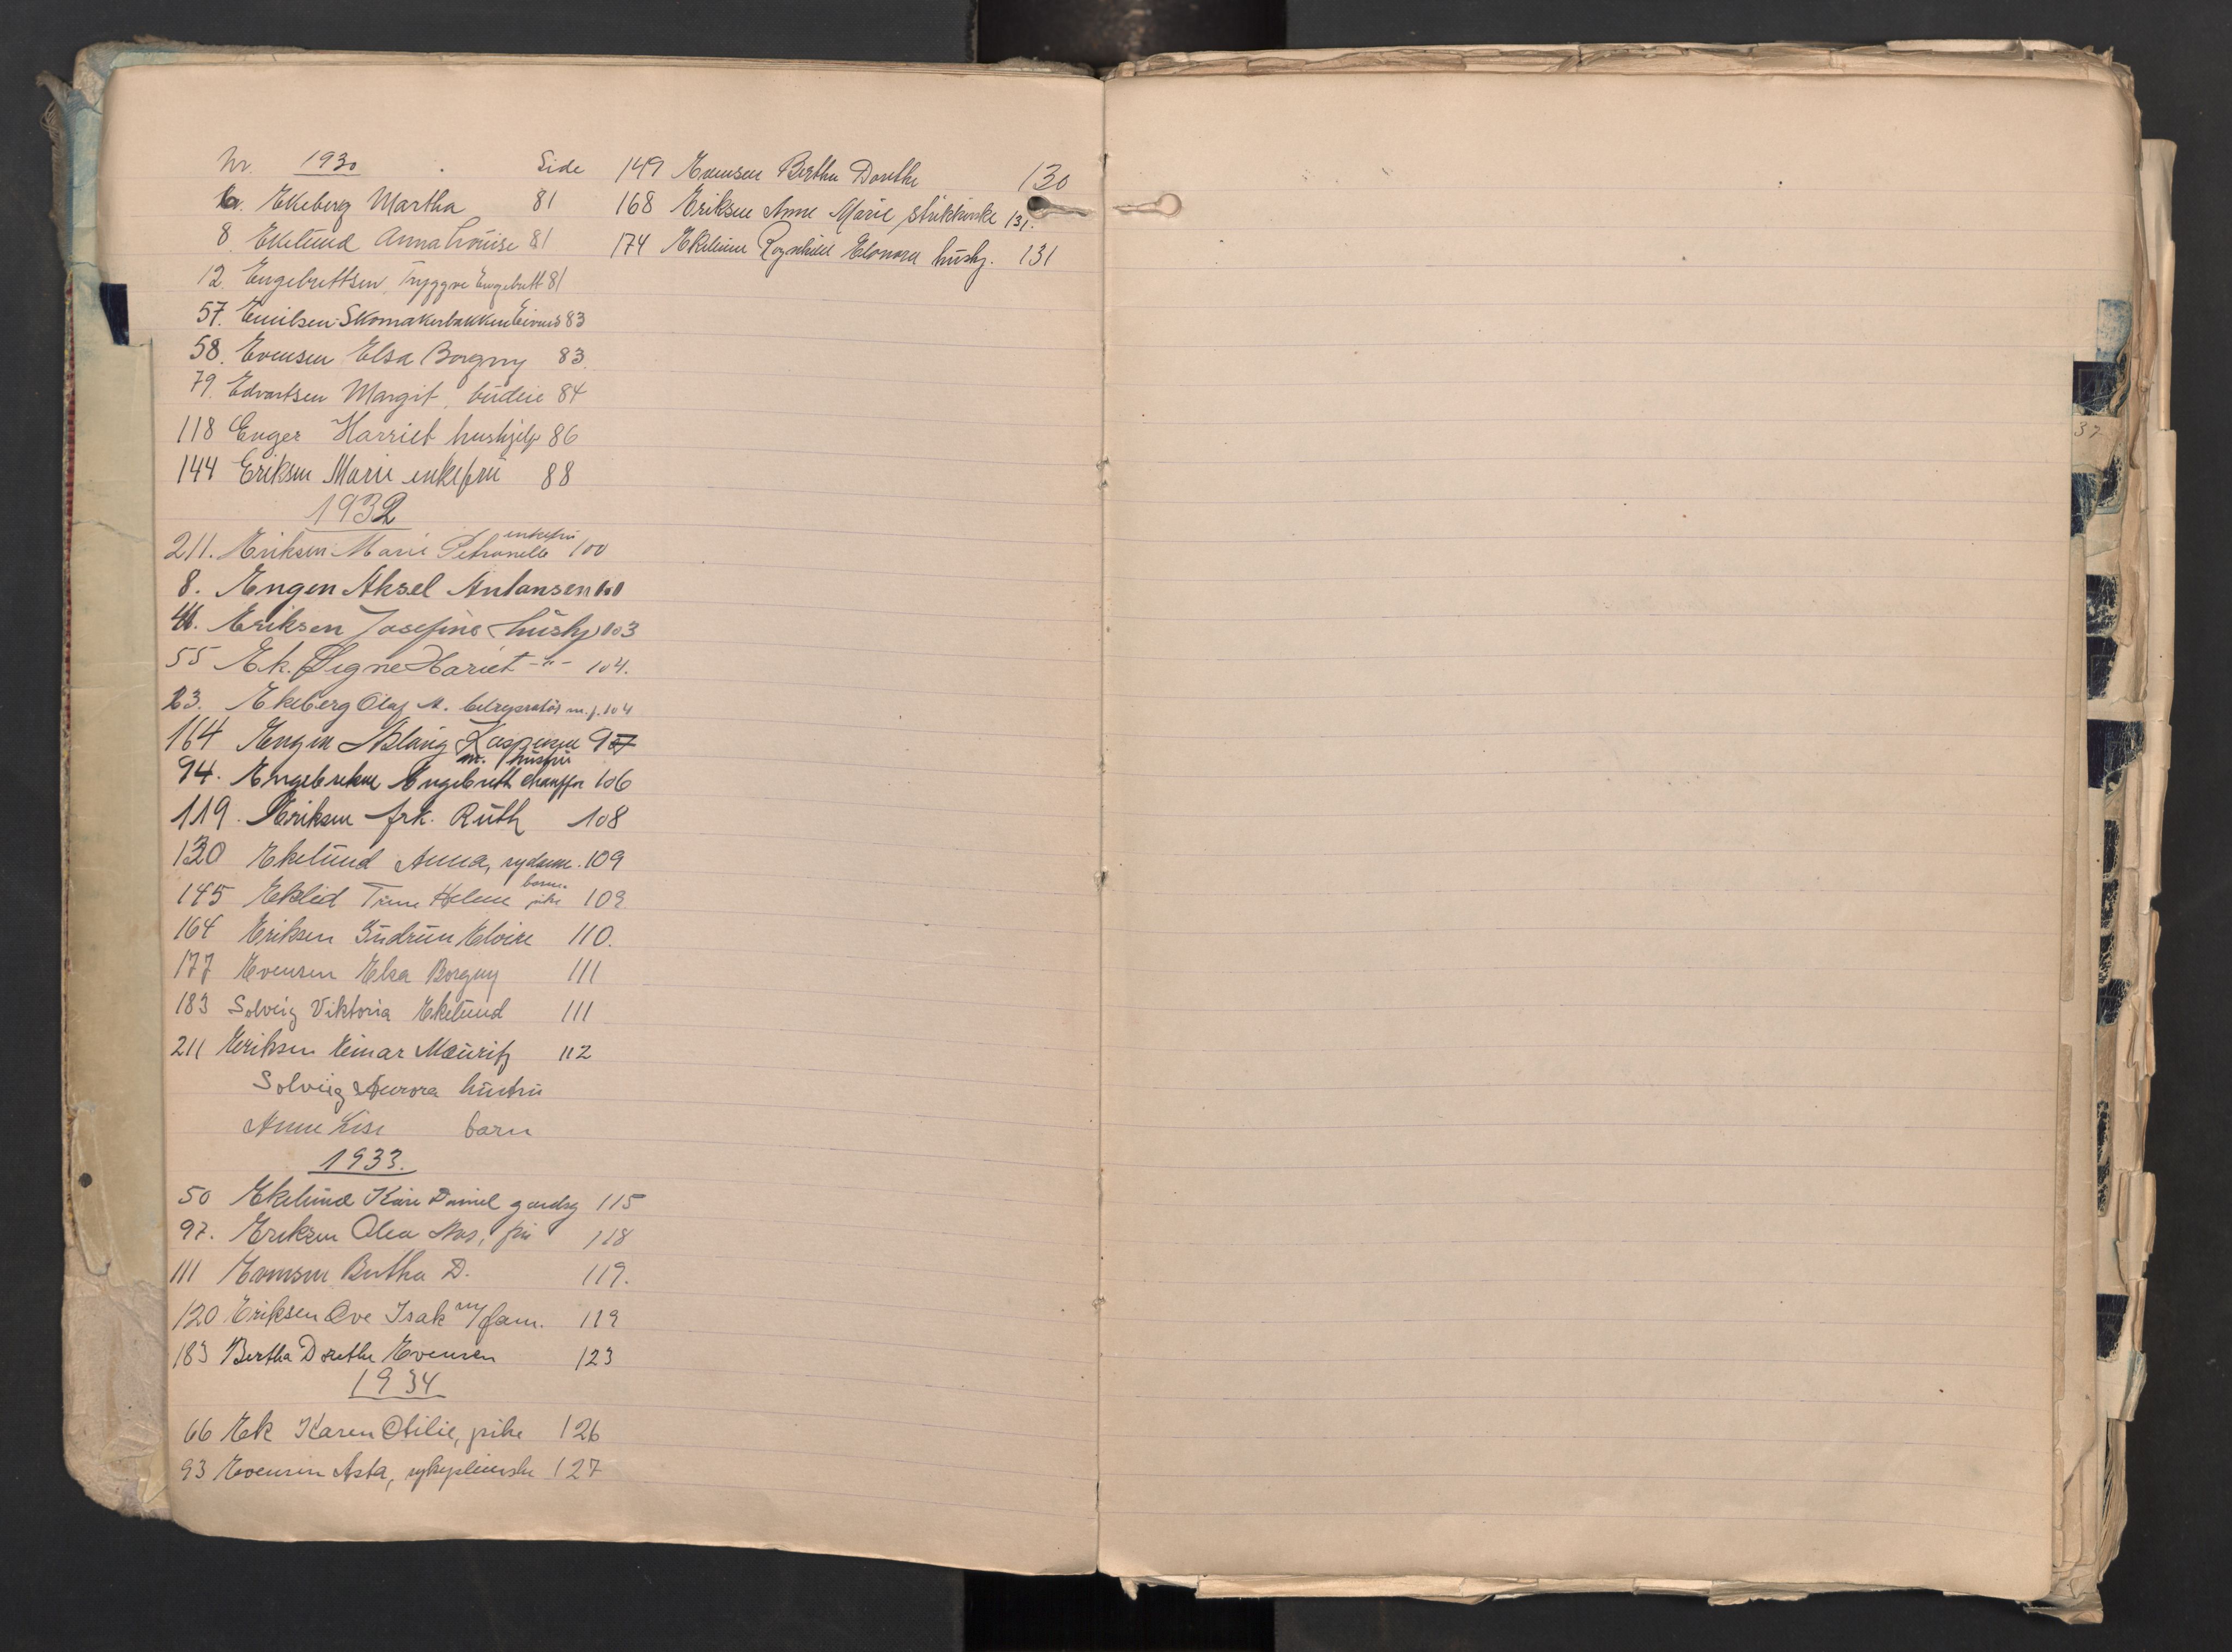 Nr. 1930 Side
Ekeberg Martha 81
8. Ekelund Anna Louise 81
12. Engebrettsen, Tryggve Engebrett 81
57. Emilsen Skomakerbakken Eivind 83
58. Evensen Elsa Borgny 83.
79. Edvartsen Margit, budeie 84
118 Enger Harriet hushjelp 86
144 Eriksen Marie enkefru 88
1932
211. Eriksen Marie Petronelle enkefru 100
8. Engen Aksel Antonsen 101
Eriksen Josefine hushj 103
55 Ek. Signe Hariet -"- 104.
23. Ekeberg Olaf A. m.f. 104
164 Engen Aslaug Kaspersen
m. hustru
94. Engebretsen Engebrett chauffør 106
119. Eriksen frk. Ruth 108
130 Ekelund Anna, 109
145 Eklid Trine Helene barne pike 109
164 Eriksen Gudrun 110.
177 Evensen Elsa Borgny 111
183 Solveig Viktoria Ekelund 111
211 Eriksen Einar Mauritz 112
Solveig Aurora hustru
Anne Lise barn
1933.
50 Ekelund Kåre Daniel gardsg 115
97. Eriksen Olea Aas, fru 118
111 Evensen Bertha D. 119.
120 Eriksen Ove Isak m/fam. 119
183 Bertha Dorethe Evensen 123
1934
66 Ek Karen Otilie, pike 126
93 Evensen Asta, sykepleierske 127
149 Evensen Bertha Dorethe 130
168 Eriksen Anne Marie strikkerske 131.
174 Ekelund Ragnhild Elonora hushj. 131
37